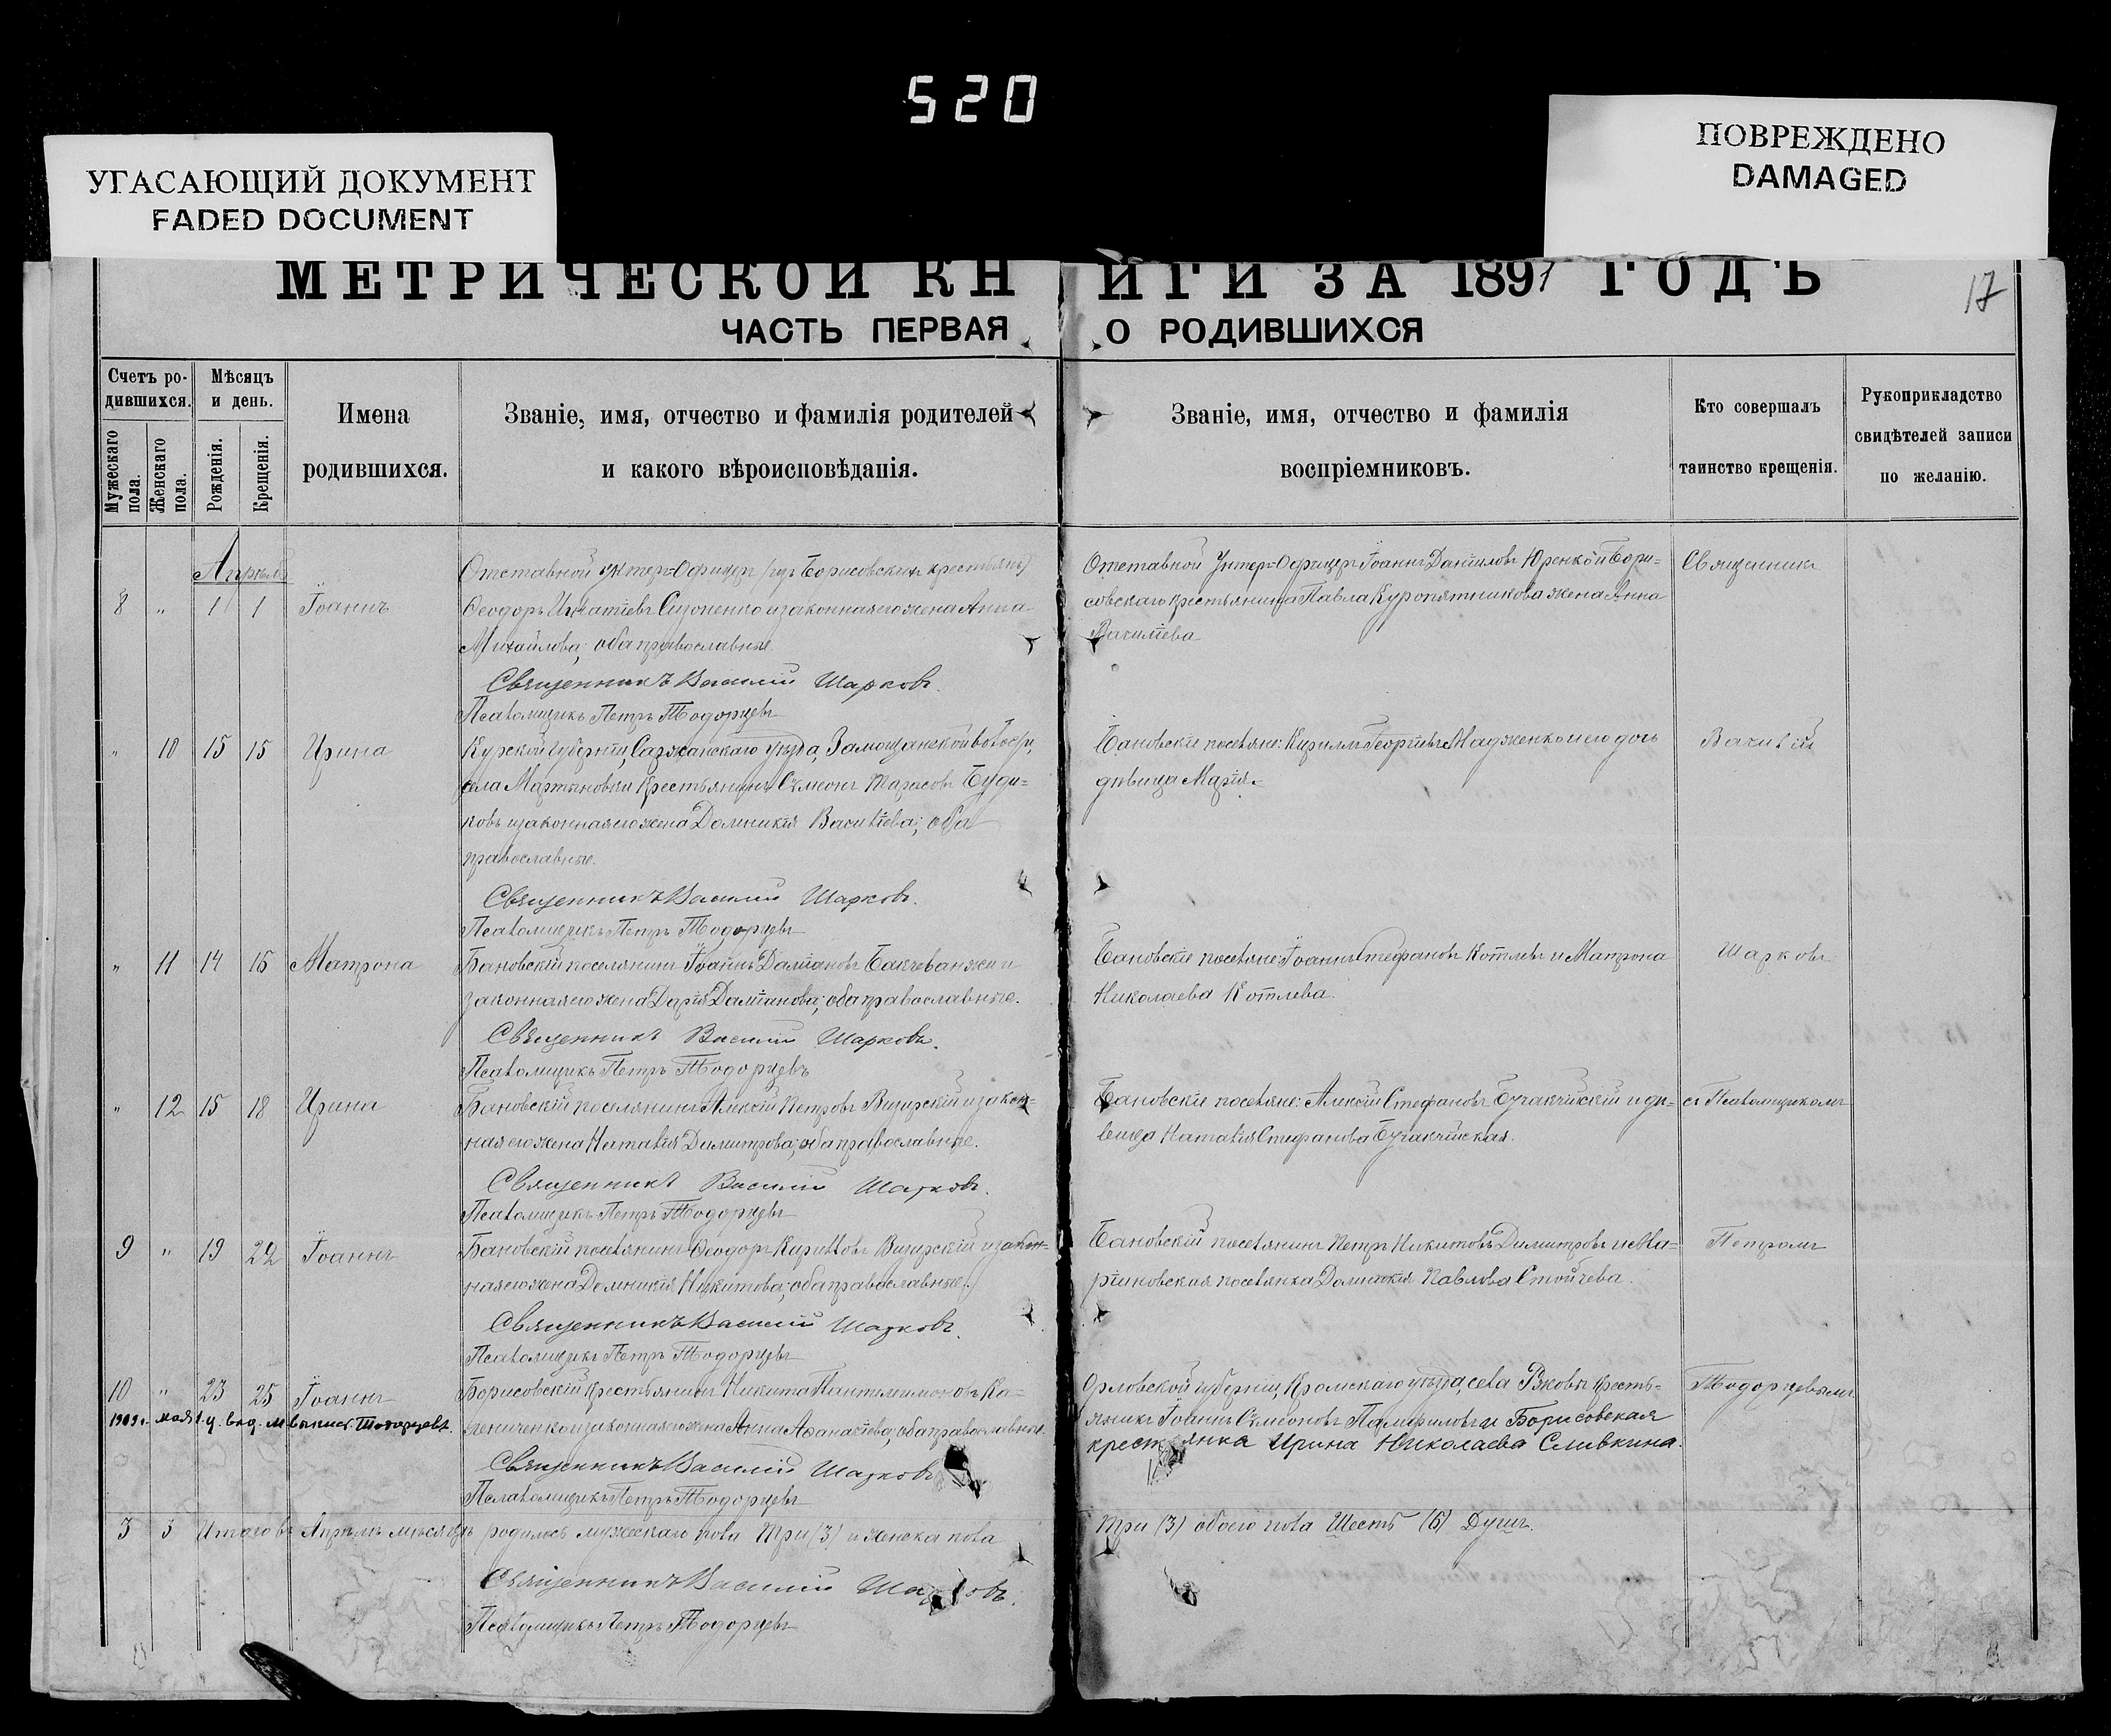 520
УГАСАЮЩИЙ ДОКУМЕНТ
FADED DOCUMENT
ПОВРЕЖДЕНО
DAMAGED
МЕТРИЧЕСКОЙ КНИГИ ЗА 1897 ГОДЪ
17
ЧАСТЬ ПЕРВАЯ О РОДИВШИХСЯ
Счетъ ро-
дившихся.
Мужескаго пола.
Женскаго пола.
Мѣсяцъ
и день.
Рожденія.
Крещенія.
Имена
родившихся.
Званіе, имя, отчество и фамилія родителей
и какого вѣроисповѣданія.
Званіе, имя, отчество и фамилія
воспріемниковъ.
Кто совершалъ
таинство крещенія.
Рукоприкладство
свидѣтелей записи
по желанію.
Апрѣль
8 " 1 1 Іоаннъ
Отставной унтеръ-Офицеръ (изъ Борисовскихъ крестьянъ)
Ѳеодоръ Игнатіевъ Сизоненко и законная его жена Анна
Михайлова; оба православные.
Священникъ Василій Шарковъ.
Псаломщикъ Петръ Тодорцевъ
Отставной Унтеръ-Офицеръ Іоаннъ Даніиловъ Юренко и Бори-
совскаго крестьянина Павла Куропятникова жена Анна
Василіева
Священникъ
" 10 15 15 Ирина
Курской губерніи, уѣзда, волости,
села Мартыновки крестьянинъ Сѵмеонъ Тарасовъ Буди-
ковъ и законная его жена Домникія Василіева; оба
православные.
Священникъ Василій Шарковъ.
Псаломщикъ Петръ Тодорцевъ
Бановскіе поселяне: Кириллъ Георгіевъ Мадженко и его дочь
дѣвица Марія.
Василій
" 11 14 16 Матрона
Бановскій поселянинъ Іоаннъ Даміановъ Бакчеванжи и
законная его жена Дарія Даміанова; оба православные.
Священникъ Василій Шарковъ.
Псаломщикъ Петръ Тодорцевъ
Бановскіе поселяне: Іоаннъ Стефановъ Котлевъ и Матрона
Николаева Котлева.
Шарковъ
" 12 15 18 Ирина
Бановскій поселянинъ Алексій Петровъ Визирскій и закон-
ная его жена Наталія Димитрова; оба православные.
Священникъ Василій Шарковъ.
Псаломщикъ Петръ Тодорцевъ
Бановскіе поселяне: Алексій Стефановъ и дѣ-
вица Наталія Стефанова
съ Псаломщикомъ
9 " 19 22 Іоаннъ
Бановскій поселянинъ Ѳеодоръ Кирилловъ Визирскій и закон-
ная его жена Домникія Никитова; оба православные.
Священникъ Василій Шарковъ.
Псаломщикъ Петръ Тодорцевъ
Бановскій поселянинъ Петръ Никитовъ Димитровъ и Ма-
ріиновская поселянка Домникія Павлова Стойчева.
Петромъ
10 " 23 25 Іоаннъ
Борисовскій крестьянинъ Никита Пантелимоновъ Ка-
и законная его жена Анна Аѳанасіева; оба православные.
1909 г. мая выпис. Тодорцевъ.
Священникъ Василій Шарковъ
Псаломщикъ Петръ Тодорцевъ
Орловской губерніи, Кромскаго уѣзда, села кресть-
янинъ Іоаннъ Сѵмеоновъ Памфиловъ и Борисовская
крестьянка Ирина Николаева Сливкина.
Тодорцевымъ
3 3 Итого въ Апрѣлѣ мѣсяцѣ родилось мужескаго пола три (3) и женска пола
три (3) обоего пола Шесть (6) Душъ.
Священникъ Василій Шарковъ.
Псаломщикъ Петръ Тодорцевъ